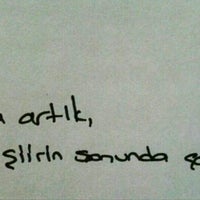 artık,
şiirin sonunda